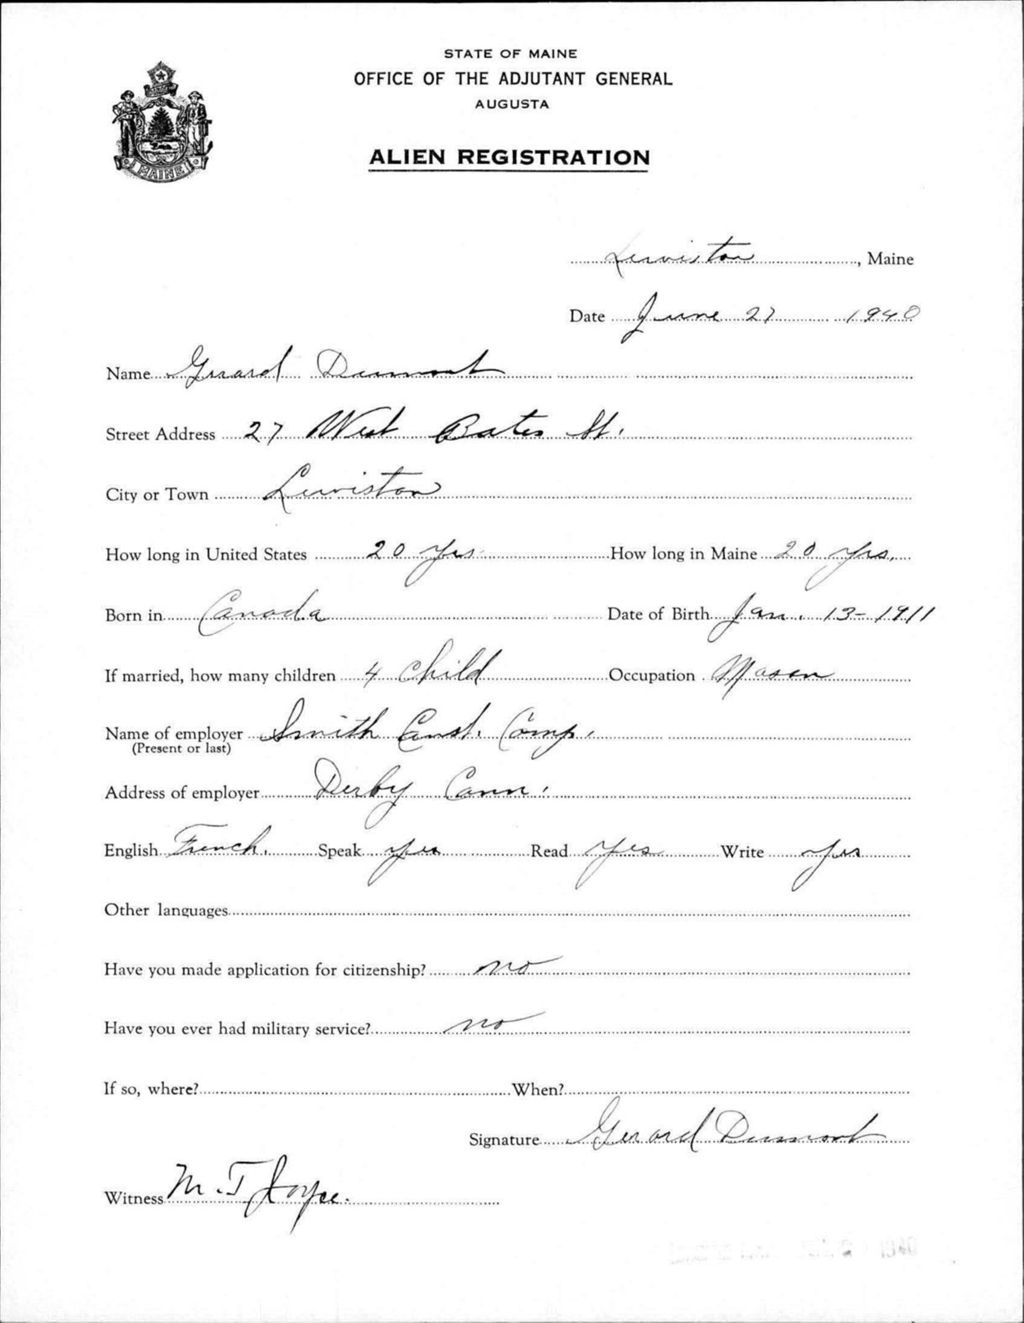 STATE OF MAINE
OFFICE OF THE ADJUTANT GENERAL
AUGUSTA
ALIEN REGISTRATION
MAINE
Lewiston, Maine
Date June 27 1940
Name Gerard Dumont
Street Address 27 West Bates St.
City or Town Lewiston
How long in United States 20 yrs. How long in Maine 20 yrs.
Born in Canada Date of Birth Jan. 13-1911
If married, how many children 4 child Occupation Mason
Name of employer Smith Const. Comp.
(Present or last)
Address of employer Derby Conn.
English French. Speak yes Read yes Write yes
Other languages
Have you made application for citizenship? no
Have you ever had military service? no
If so, where? When?
Signature Gerard Dumont
Witness M. T. Joyce.